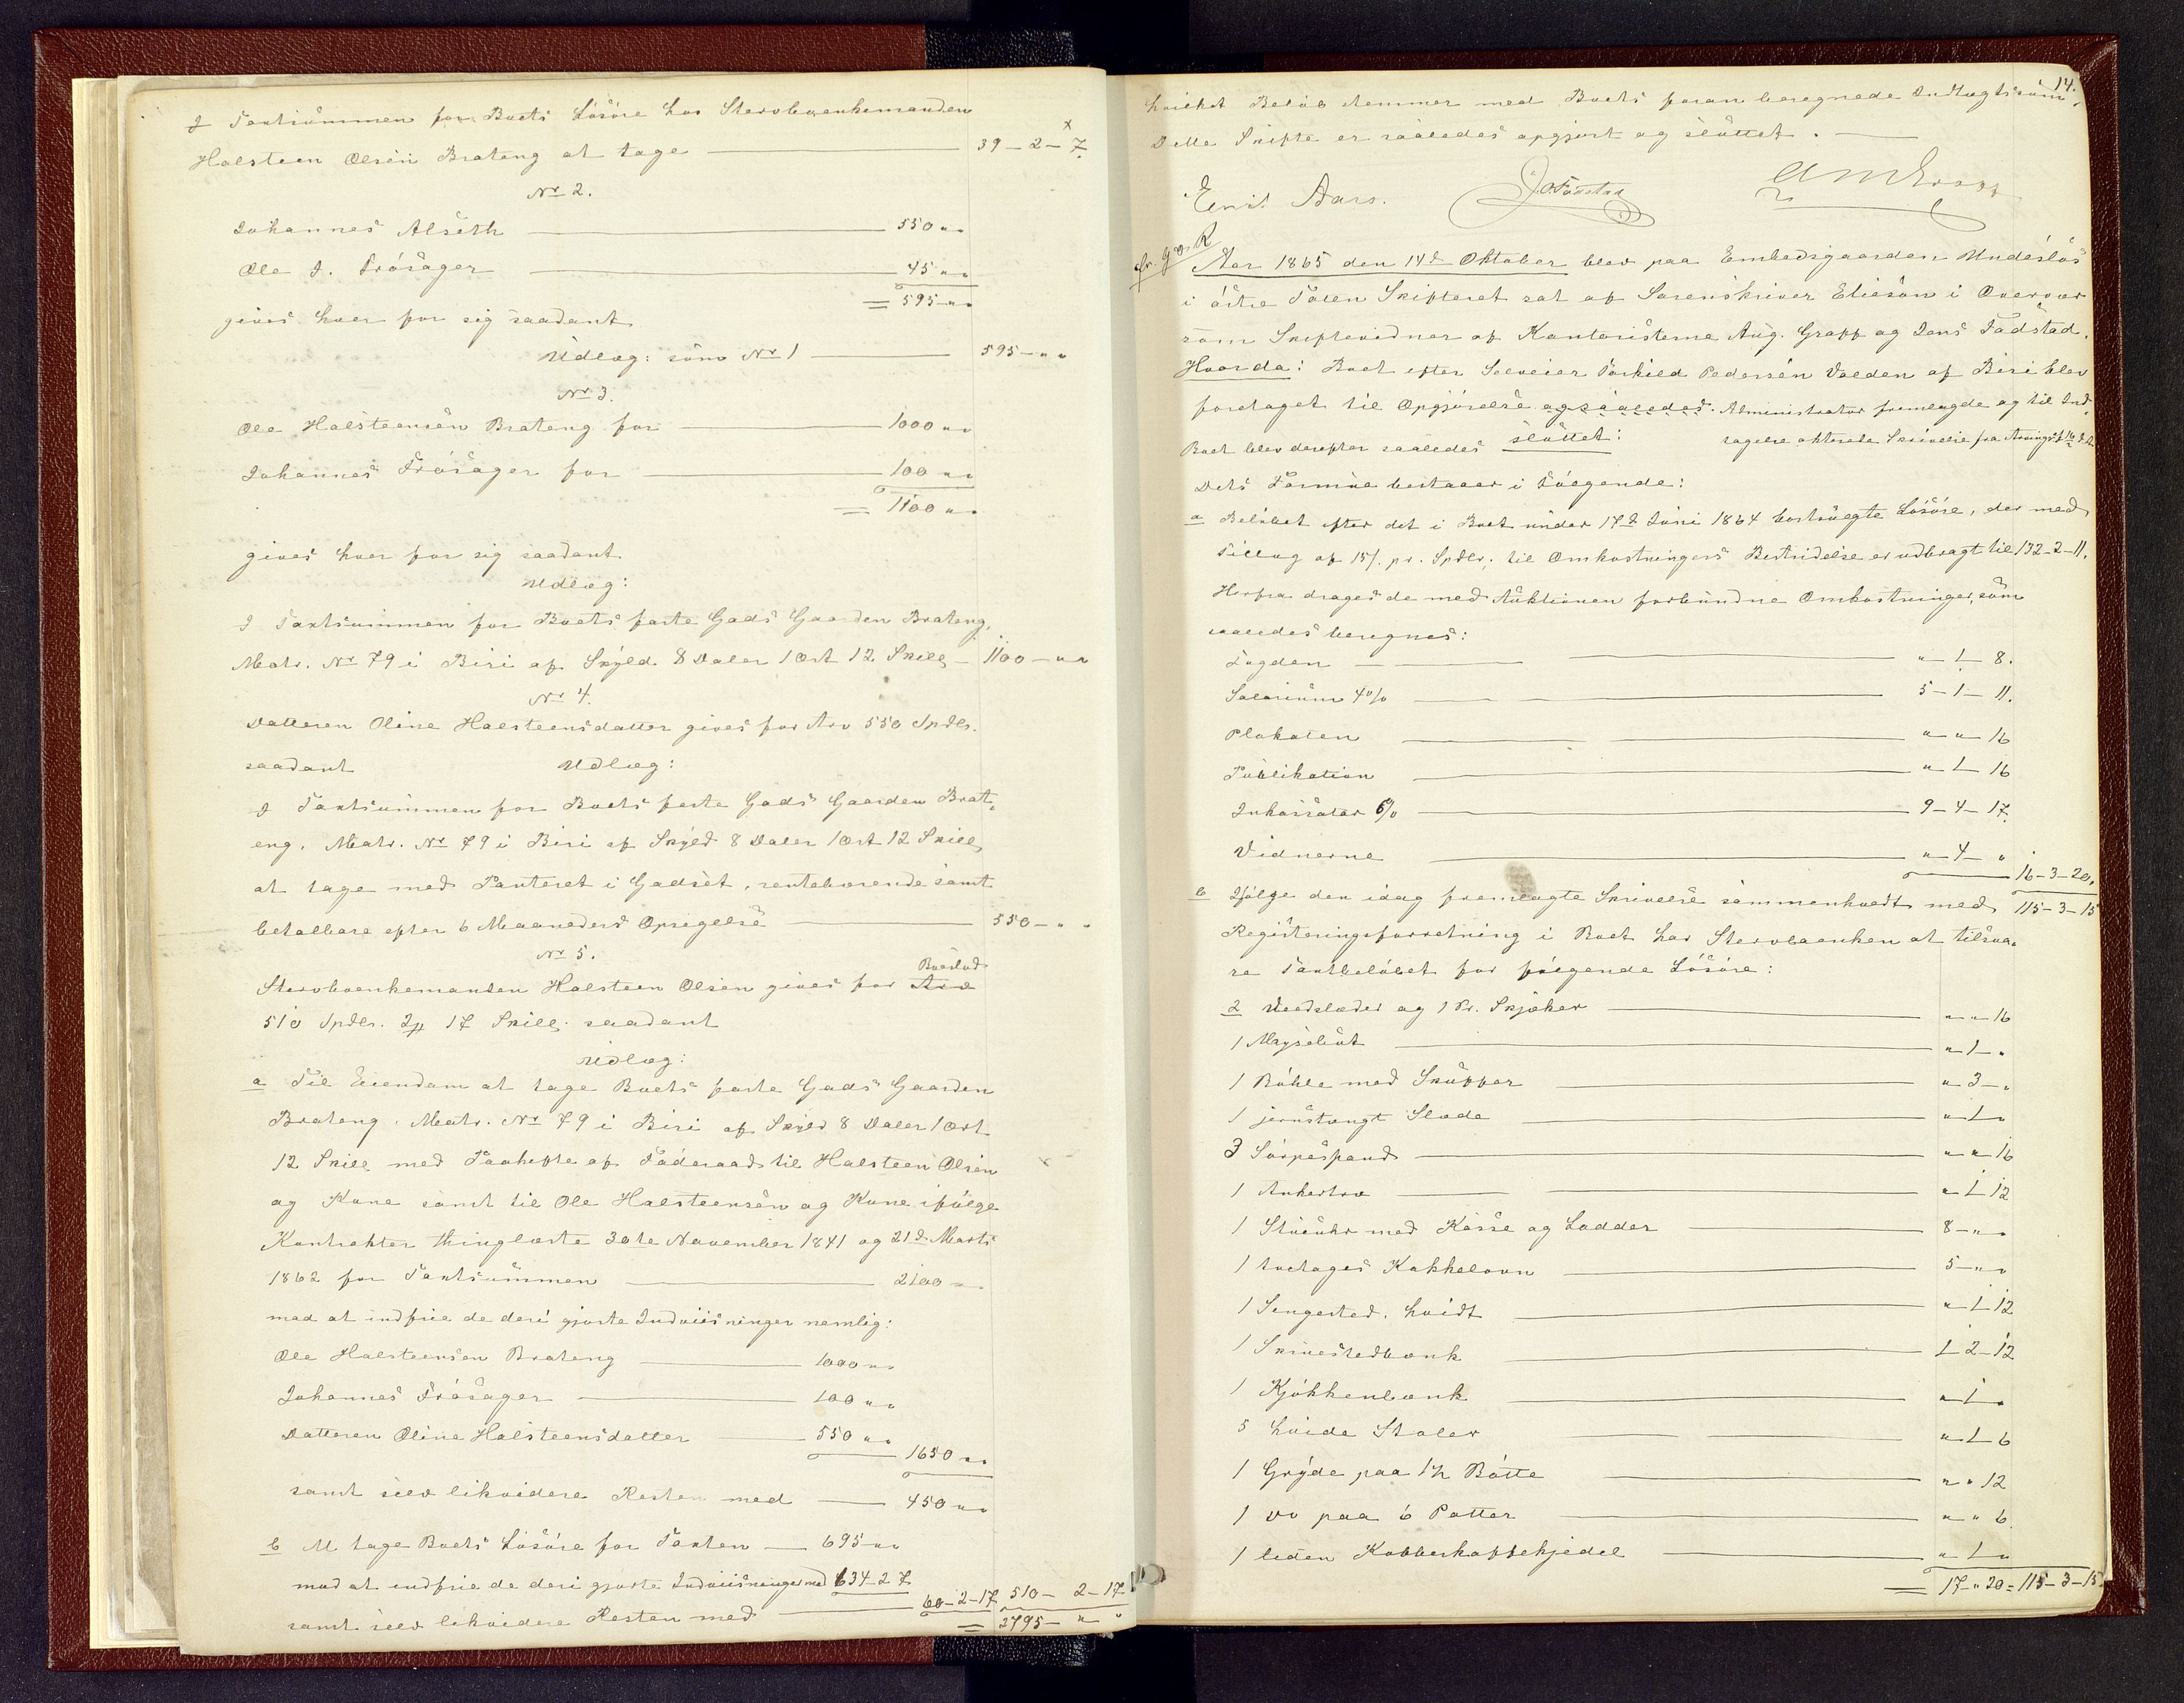 I Taxtsummen for Boets Løsøre hos Stervboenkemanden
Halsteen Olsen Brateng at tage — 39-2-7.
No 2.
Johannes Alseth — 550 " "
Ole J. Frøsager — 45 " "
= 595 - " "
gives hver for sig saadant
Udlæg: som No 1 — 595 - " "
No 3.
Ole Halsteensen Brateng for — 1000 " "
Johannes Frøsager for — 100 " "
= 1100 " "
gives hver for sig saadant
Udlæg:
I Taxtsummen for Boets faste Gods Gaarden Brateng,
Matr. No 79 i Biri af Skyld 8 Daler 1 Ort 12 Skill — 1100 - " "
No 4.
Datteren Oline Halsteensdatter gives for Arv 550 Spdlr.
saadant Udlæg:
I Taxtsummen for Boets faste Gods Gaarden Brat-
eng, Matr. No 79 i Biri af Skyld 8 Daler 1 Ort 12 Skill,
at tage med Panteret i Godset, rentebærende samt
betalbare efter 6 Maaneders Opsigelse — 550 - " "
No 5.
Boeslod
Stervboenkemanden Halsteen Olsen gives for Arv
510 Spdlr. 2 17 Skill. saadant
Udlæg:
a Til Eiendom at tage Boets faste Gods Gaarden
Brateng, Matr. No 79 i Biri af Skyld 8 Daler 1 Ort
12 Skill med Paahefte af Føderaad til Halsteen Olsen
og Kone samt til Ole Halsteensen og Kone ifølge
Kontrakter thinglæste 30te November 1841 og 21d Marts
1862 for Taxtsummen — 2100 " "
mod at indfrie de deri gjorte Indviisninger nemlig:
Ole Halsteensen Brateng — 1000 " "
Johannes Frøsager — 100 " "
Datteren Oline Halsteensdatter — 550 " "
1650 " "
samt selv likvidere Resten med — 450 " "
b At tage Boets Løsøre for Taxten — 695 " "
mod at indfrie de deri gjorte Indviisninger med 634-2 7
samt selv likvidere Resten med — 60-2-17 510 - 2-17
= 2795 - " "
14.
hvilket Beløb stemmer med Boets foran beregnede Indtægtssum.
Dette Skifte er saaledes opgjort og sluttet. —
Emil Aars. J. Fadstad
Aar 1865 den 14d Oktober blev paa Embedsgaarden Undeslös
i östre Toten Skifteret sat af Sorenskriver Elieson i Overvær
som Skiftevidner af Kontoristerne Aug. Grapp og Jens Fadstad.
Hvorda: Boet efter Selveier Torkild Pedersen Volden af Biri blev
foretaget til Opgjörelse og saaledes. Administrator fremlagde og til Ind-
Boet blev derefter saaledes sluttet: tagelse akterede Skrivelse fra
Dets Formue bestaaer i Følgende:
a Beløbet efter det i Boet under 17d Juni 1864 bortsolgte Løsøre, der med
Tillæg af 15 s. pr. Spdlr. til Omkostningers Bestridelse er udbragt til 132-2-11.
Herfra drages de med Auktionen forbundne Omkostninger, som
saaledes beregnes:
Fogden — " - 1 - 8.
Salarium 4% — 5-1-11.
Plakaten — " " 16
Publikation — " 1 16
Inkassator 6% — 9-4-17.
Vidnerne — " 4 "
16-3-20.
b Ifølge den idag fremlagte Skrivelse sammenholdt med 115-3-15
Registeringsforretning i Boet har Stervboenken at tilsva-
re Taxtbeløbet for følgende Løsøre:
2 Vedslæder og 1 Pr. Skjøker — " " 16
1 Mysebut — " 1 "
1 Røkle med Skupper — " 3 - "
1 jernstangt Slæde — " 1 "
3 Sørpespand — " " 16
1 Ankertræ — " 1 12
1 Stueuhr med Kasse og Lodder — 8 - " "
1 toetages Kakkelovn — 5 - " "
1 Sengested, hvidt — " 1 12
1 Skrivestedbænk — 1 2-12
1 Kjøkkenbænk — " 1 "
5 hvide Stoler — " 1 6
1 Gryde paa 1½ Bøtte — " " 12
1 do paa 6 Potter — " " 6
1 liden Kobberkaffekjedel — " 1 "
= 17 " 20 = 115-3-15